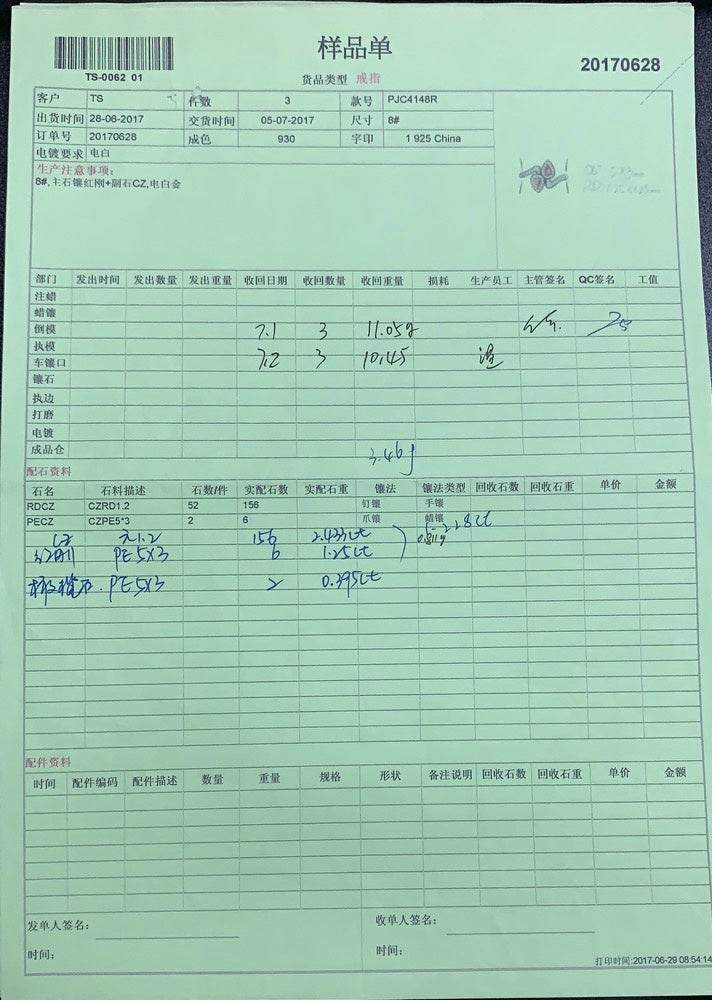 样品单
TS-0062 01
货品类型 戒指
20170628
客户 TS 件数 3 款号 PJC4148R
出货时间 28-06-2017 交货时间 05-07-2017 尺寸 8#
订单号 20170628 成色 930 字印 1 925 China
电镀要求 电白
生产注意事项:
8#,主石镶红刚+副石CZ,电白金
部门 发出时间 发出数量 发出重量 收回日期 收回数量 收回重量 损耗 生产员工 主管签名 QC签名 工值
注蜡
蜡镶
倒模 7.1 3 11.05g
执模
车镶口 7.2 3 10.45
镶石
执边
打磨
电镀
成品仓 3.46g
配石资料
石名 石料描述 石数/件 实配石数 实配石重 镶法 镶法类型 回收石数 回收石重 单价 金额
RDCZ CZRD1.2 52 156 钉镶 手镶
PECZ CZPE5*3 2 6 爪镶 蜡镶
CZ 1.2 156 2.433ct 0.811g
PE 5X3 6 1.25ct
PE 5X3 2 0.395ct
配件资料
时间 配件编码 配件描述 数量 重量 规格 形状 备注说明 回收石数 回收石重 单价 金额
发单人签名: 收单人签名:
时间: 时间:
打印时间:2017-06-29 08:54:14